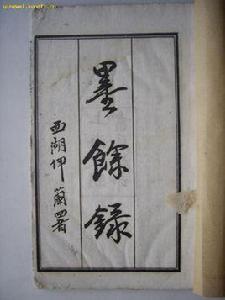 墨餘錄
西湖伊蘭署